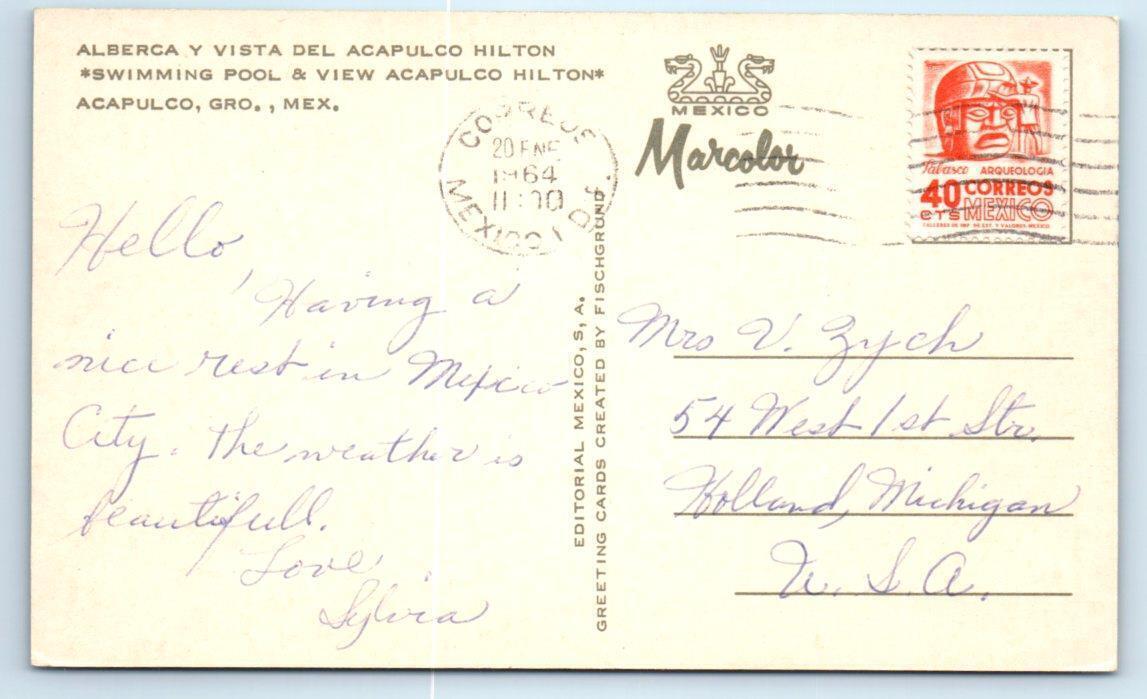 ALBERCA Y VISTA DEL ACAPULCO HILTON
*SWIMMING POOL & VIEW ACAPULCO HILTON*
ACAPULCO, GRO., MEX.
MEXICO
Marcolor
CORREOS
20 ENE
1964
11:00
MEXICO 1 D.F.
Tabasco ARQUEOLOGIA
40 CORREOS
CTS MEXICO
TALLERES DE IMP. DE EST. Y VALORES-MEXICO
Hello,
Having a
nice rest in Mexico
City. The weather is
beautifull.
Love,
Sylvia
EDITORIAL MEXICO, S, A.
GREETING CARDS CREATED BY FISCHGRUND
Mrs V. Zych
54 West 1st Str.
Holland, Michigan
U. S. A.